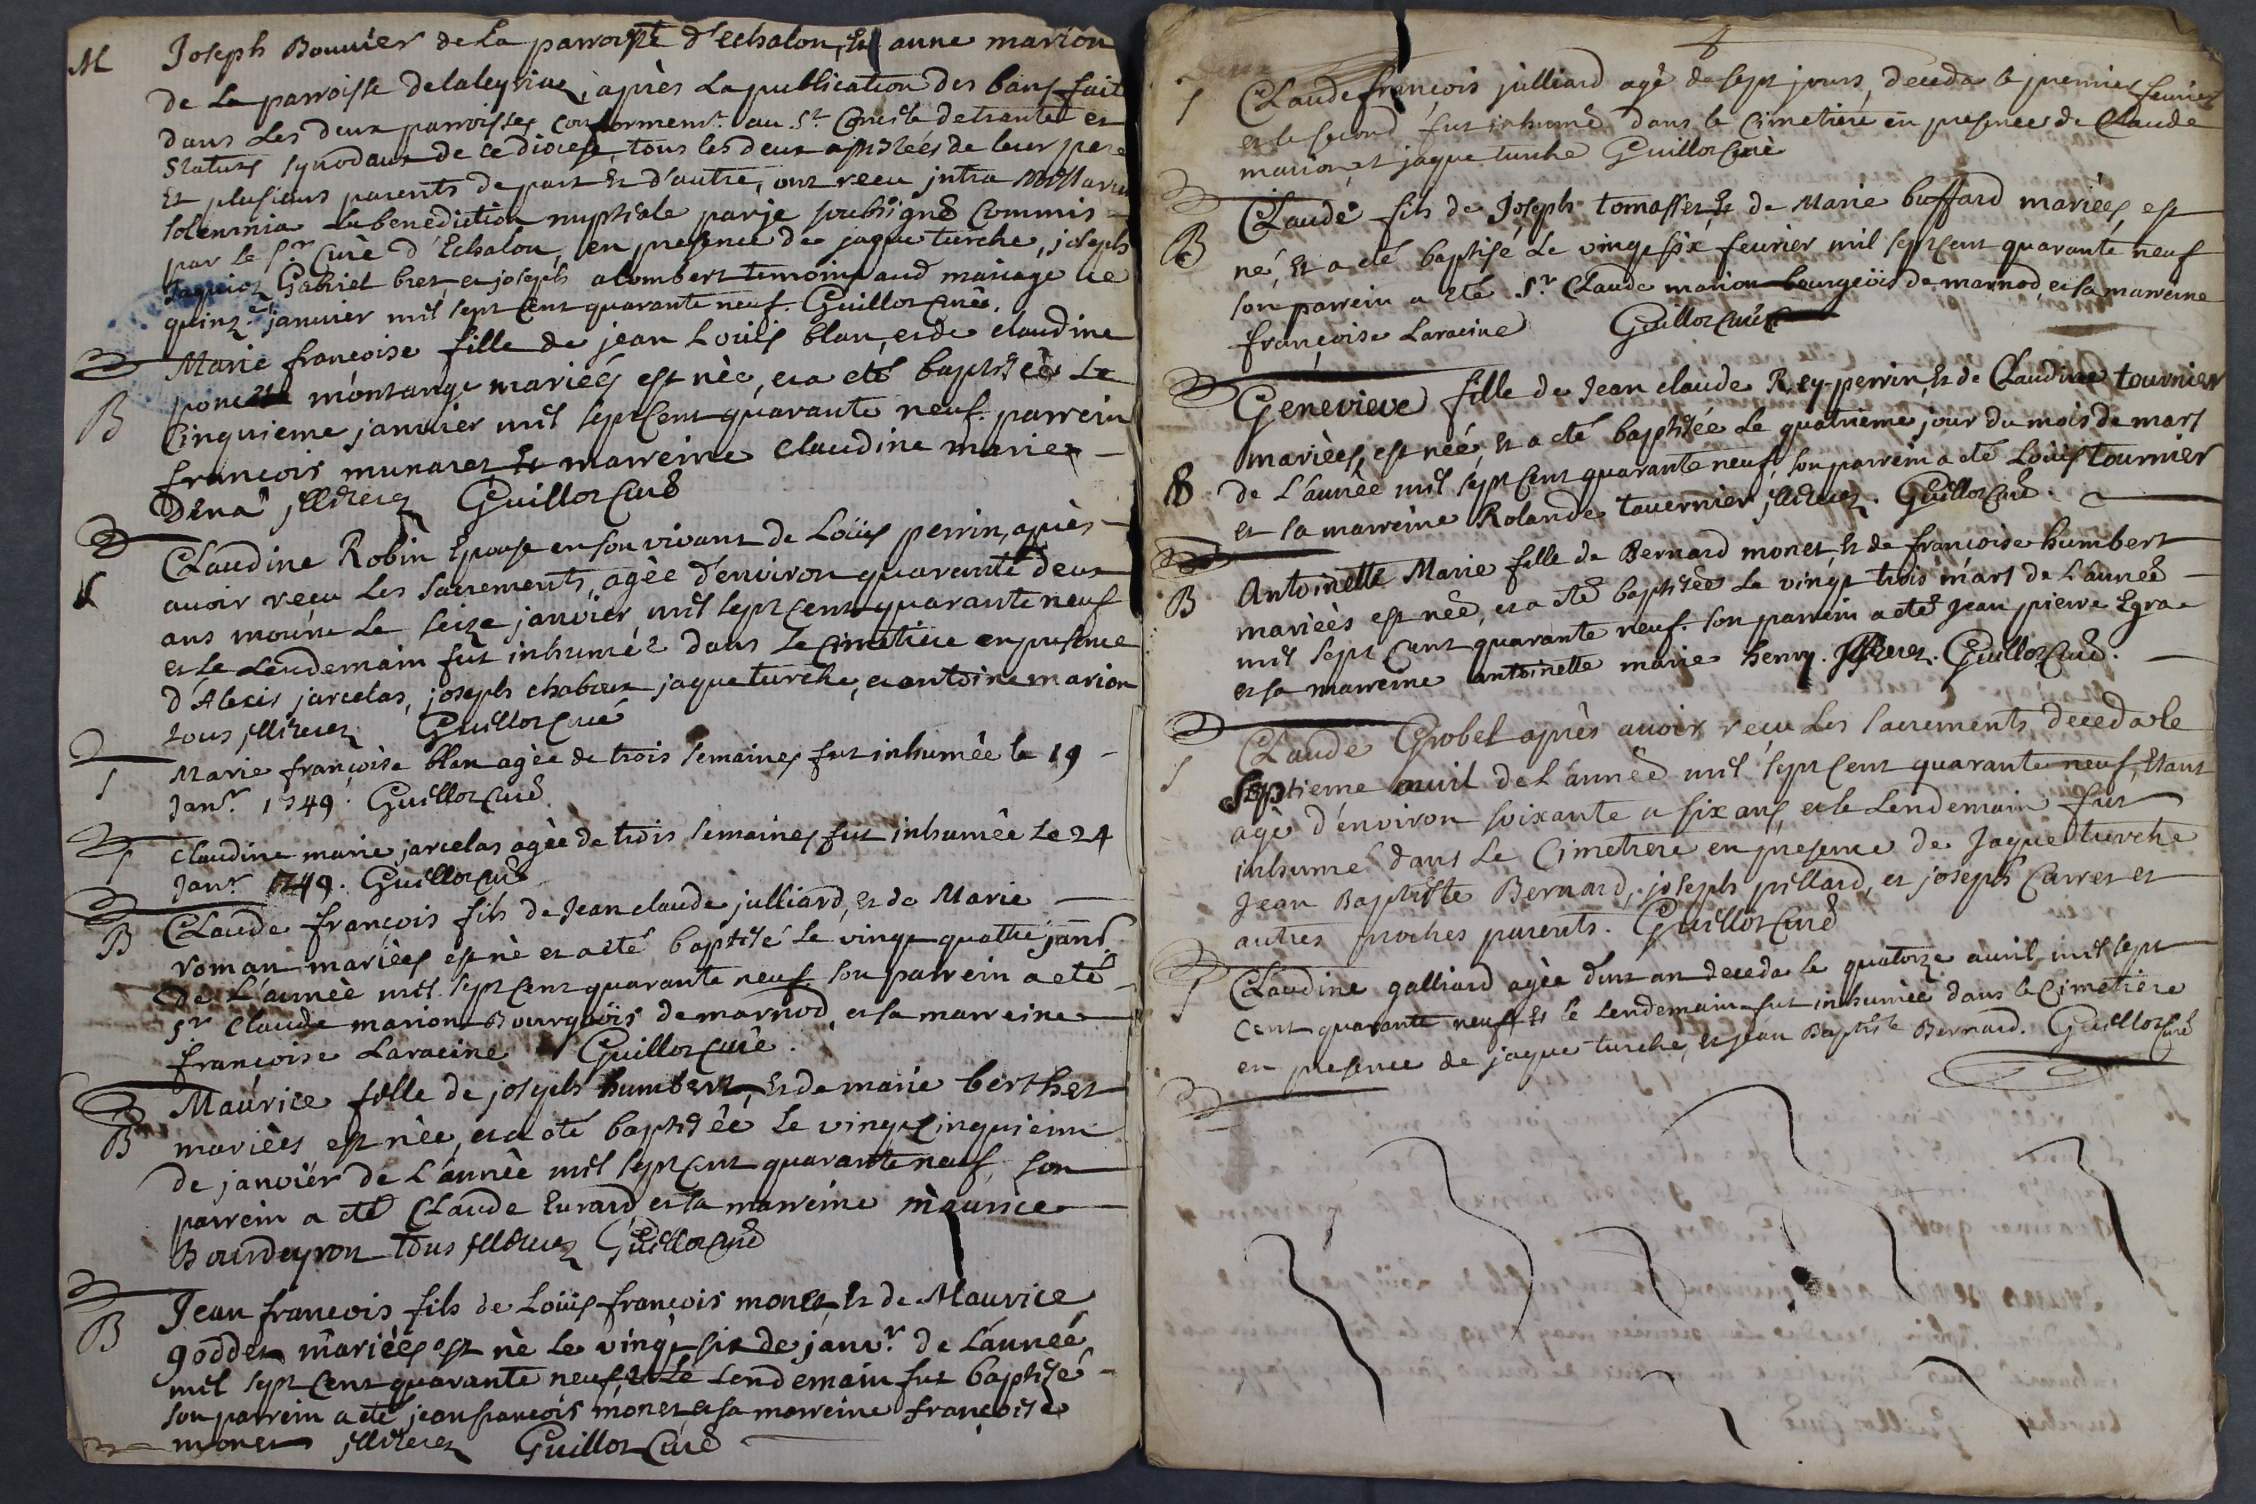 M Joseph Bouvier de la parroisse d'echalon, et anne marion
de la parroisse delaleyriaz, après la publication des bans fait
dans les deux parroisses conformemt. au St. Concile de trante et
Statuts synodaux de ce diocese, tous les deux assistées de leur pere
Et plusieurs parents de part Et d'autre, ont recu jntra
solemnia la benediction nuptiale par je soubsigné Commis
par le Sr. Curé d'Echalon, en presence de jaque turche, joseph
Gabriel bret et joseph alombert temoins aud mariage le
quinze janvier mil sept cent quarante neuf. Guillot Curé.
Marie françoise fille de jean Louis blan, et de claudine
poncet montange mariéés est née, et a eté baptisée Le
B Cinquieme janvier mil sept Cent quarante neuf. parrein
francois munaret Et marreine claudine marie
Dena jllitérez Guillot Curé
Claudine Robin Epouse en son vivant de Loüis perrin, après
S avoir recu Les Sacrements, agèe d'environ quarante deux
ans mourut Le seize janvier mil sept cent quarante neuf
et le Lendemain fut inhumée dans Le cimetiere en presence
d'Alexis jarcelas, joseph chaboux jaque turche, et antoine marion
tous jllitérez Guillot Curé
S Marie françoise blan agèe de trois semaines fut inhumée le 19
Janr. 1749. Guillot Curé
S Claudine marie jarcelas agèe de trois semaines fut inhumée Le 24
Janr. 1749. Guillot Curé
B Claude francois fils de Jean claude julliard, et de Marie
roman mariéés est né et a eté baptisé Le vingt quatre janr
De L'année mil sept Cent quarante neuf. son parrein a eté
Sr Claude marion Bourgeois de marnod, et sa marreine
françoise Laracine Guillot Curé.
Maurice fille de joseph humbert, Et de marie berthet
B mariéés est née, et a eté baptiséé Le vingt cinquieme
de janvier de L'année mil sept Cent quarante neuf son
parrein a eté Claude Evrard et sa marreine maurice
Bourdeyron tous jllitérez Guillot Curé
Jean francois fils de Loüis françois monet, Et de Maurice
B goddet mariéés est né Le vingt six de janvr. de L'année
mil sept Cent quarante neuf, Et Le Lendemain fut baptisé
son parrein a eté jean francois monet et sa marreine françoise
monet jllitérez Guillot Curé
S Claude françois julliard agé de sept jours, deceda le premier fevrier
et le second fut inhumé dans le Cimetiere en presence de Claude
marion et jaque turche Guillot Curé
Claude fils de Joseph tomasset Et de Marie buffard mariéés est
B né Et a eté baptisé Le vingt six fevrier mil sept Cent quarante neuf
son parrein a eté Sr Claude marion bourgeois de marnod, et sa marreine
françoise Laracine Guillot Curé
Genevieve fille de Jean claude Rey-perrin, Et de Claudine tournier
mariéés, est née Et a eté baptisée Le quatrieme jour du mois de mars
B de L'année mil sept Cent quarante neuf, son parrein a eté Loüis tournier
et sa marreine Rolande tavernier jllitérez. Guillot Curé.
Antoinette Marie fille de Bernard monet, Et de françoise humbert
B mariéés est née, et a eté baptisée Le vingt trois mars de L'année
mil sept Cent quarante neuf. son parrein a eté Jean pierre Egra
et sa marreine antoinette marie henry. Jllitérez. Guillot Curé.
Claude Grobel après avoir reçu Les sacrements, deceda le
S septieme avril de L'année mil sept Cent quarante neuf, Etant
agé d'environ soixante et six ans, et le Lendemain fut
inhumé dans Le Cimetiere en presence de Jaque turche
Jean Baptiste Bernard, joseph pillard, et joseph Carret et
autres proches parents. Guillot Curé
S Claudine galliard agèe d'un an deceda le quatorze avril mil sept
Cent quarante neuf Et le Lendemain fut inhumée dans le Cimetiere
en presence de jaque turche, Et Jean Baptiste Bernard. Guillot Curé